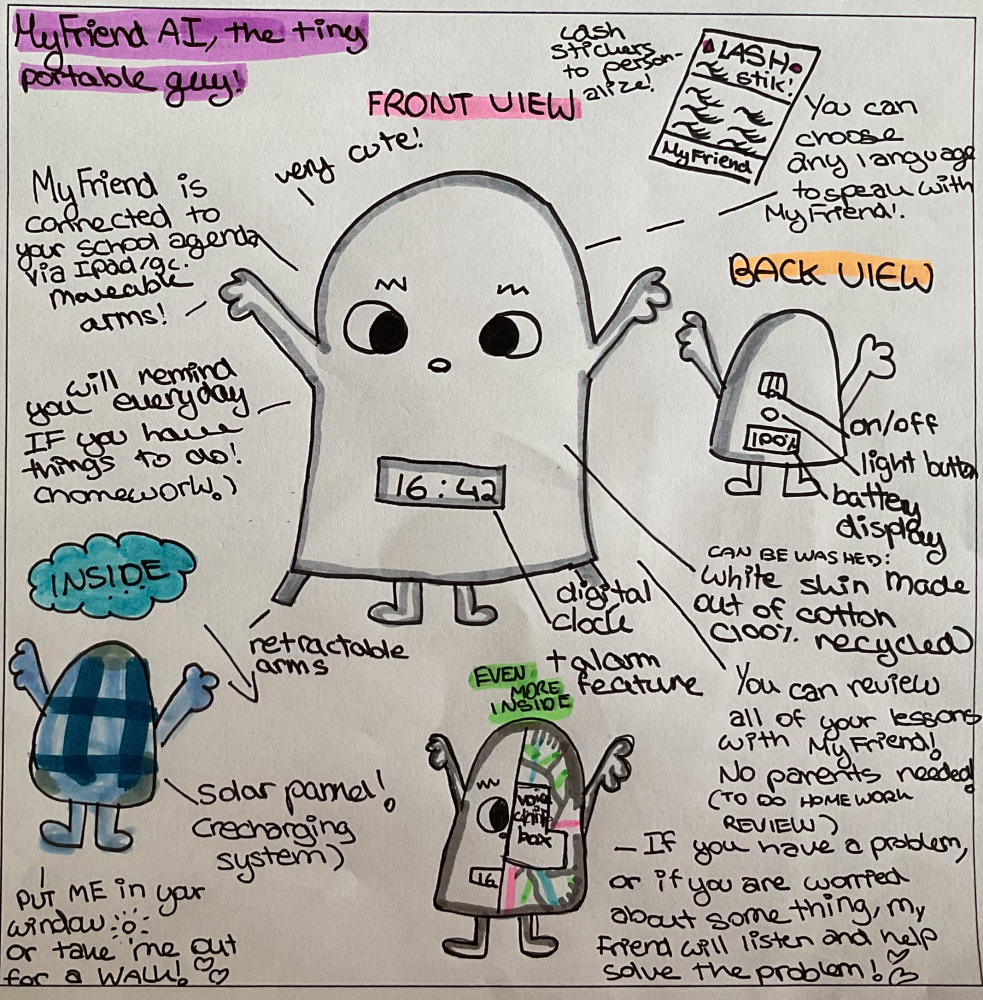 MyFriend AI, the tiny
portable guy!
FRONT VIEW
very cute!
Lash
stickers
to person-
alize!
LASH
stik!
MyFriend
You can
choose
any language
to speak with
MyFriend!.
MyFriend is
connected to
your school agenda
via Ipad/gc.
moveable
arms!
will remind
you everyday
IF you have
things to do!
(homework.)
16:42
BACK VIEW
on/off
light button
100%
battery
display
CAN BE WASHED:
white skin made
out of cotton
(100% recycled)
digital
clock
+ alarm
feature
retractable
arms
INSIDE
Solar pannel!
(recharging
system)
PUT ME in your
window
or take me out
for a WALK!
EVEN
MORE
INSIDE
voice
box
16
You can review
all of your lessons
with MyFriend!
No parents needed!
(TO DO HOMEWORK
REVIEW)
— If you have a problem,
or if you are worried
about something, my
Friend will listen and help
solve the problem!